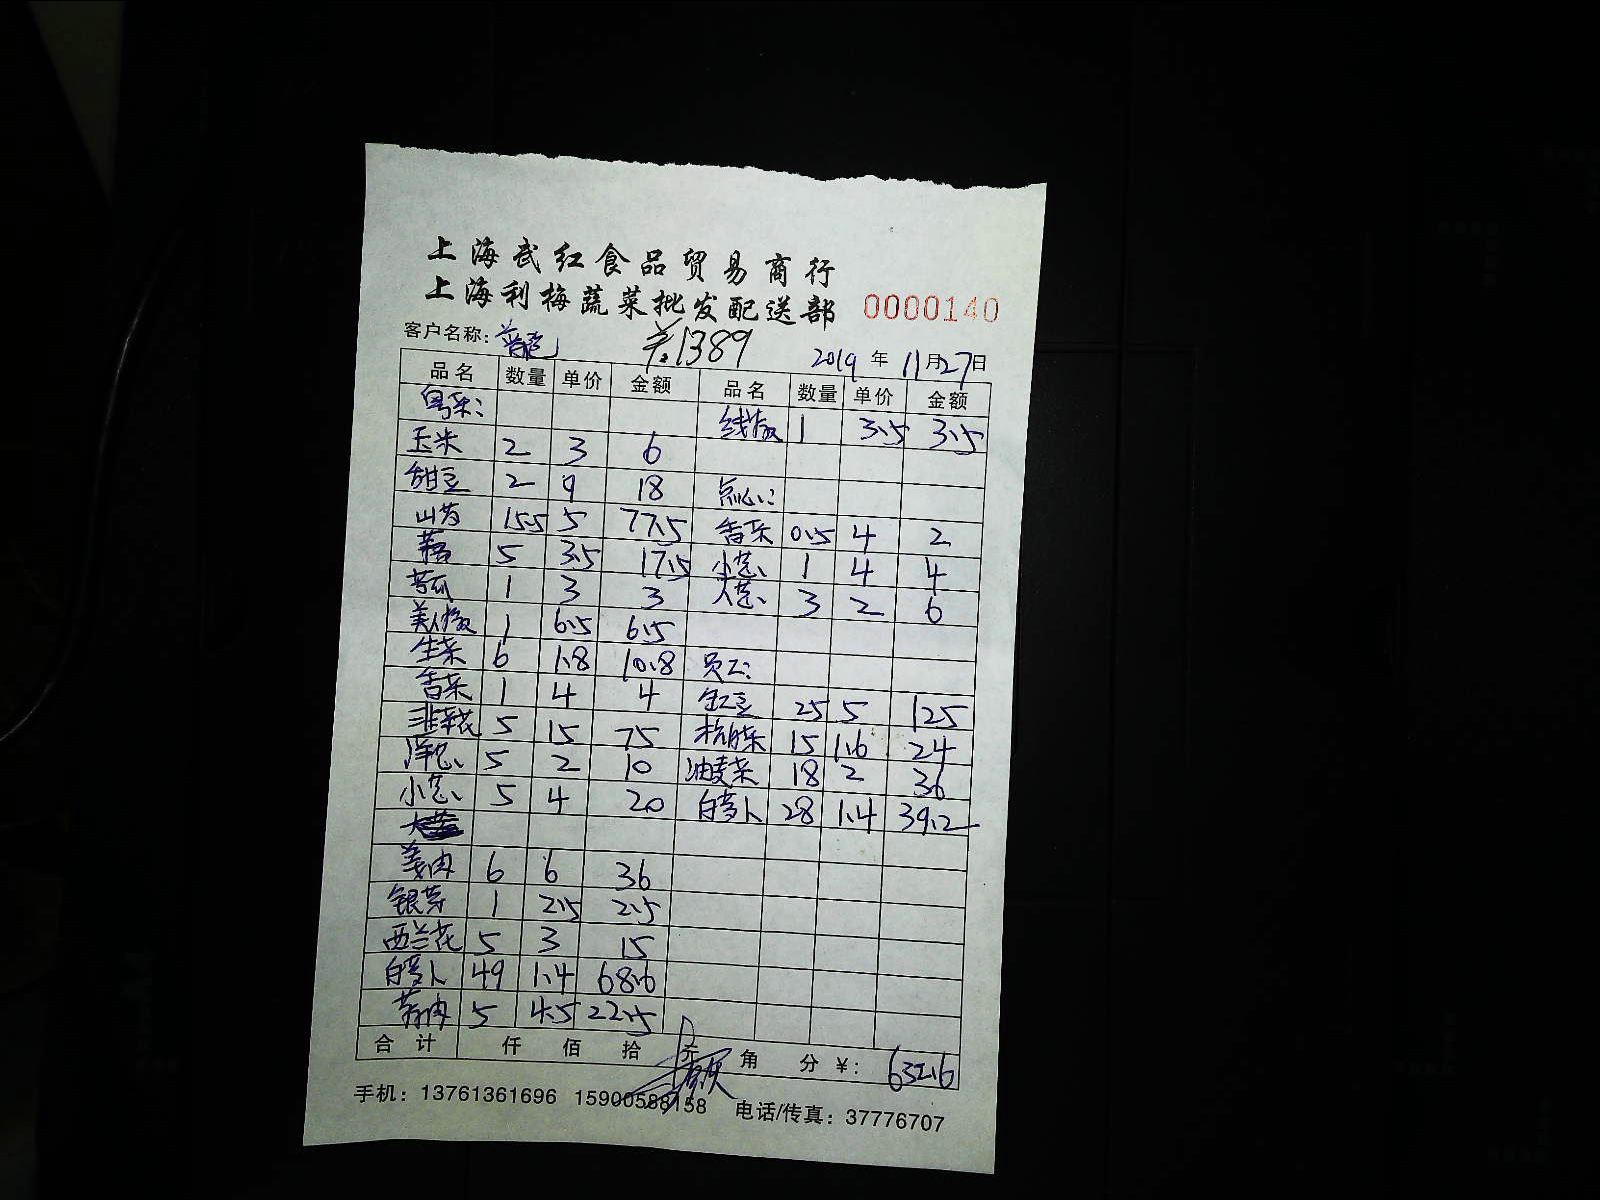 上海武红食品贸易商行
上海利梅蔬菜批发配送部 0000140
客户名称: ¥1389 2019年11月27日
品名 数量 单价 金额 品名 数量 单价 金额
粤菜: 线椒 1 3.5 3.5
玉米 2 3 6
甜豆 2 9 18 点心:
山药 15.5 5 77.5 香菜 0.5 4 2
藕 5 3.5 17.5 小葱 1 4 4
苦瓜 1 3 3 大葱 3 2 6
美人椒 1 6.5 6.5
生菜 6 1.8 10.8 员工:
香菜 1 4 4 豆 25 5 125
韭菜花 5 15 75 杭白菜 15 1.6 24
洋葱 5 2 10 油麦菜 18 2 36
小葱 5 4 20 白萝卜 28 1.4 39.2
姜肉 6 6 36
银芽 1 2.5 2.5
西兰花 5 3 15
白萝卜 49 1.4 68.6
肉 5 4.5 22.5
合计 仟 佰 拾 元 角 分 ¥: 632.6
手机: 13761361696 15900588158 电话/传真: 37776707